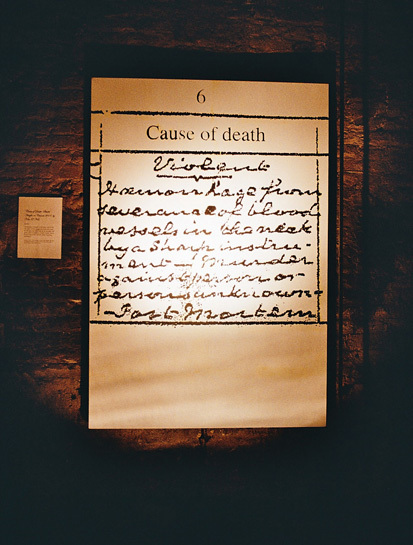 6
Cause of death
Violent
Hæmorrhage from
severance of blood
vessels in the neck
by a sharp instru-
ment - Murder
against person or
persons unknown -
- Post Mortem